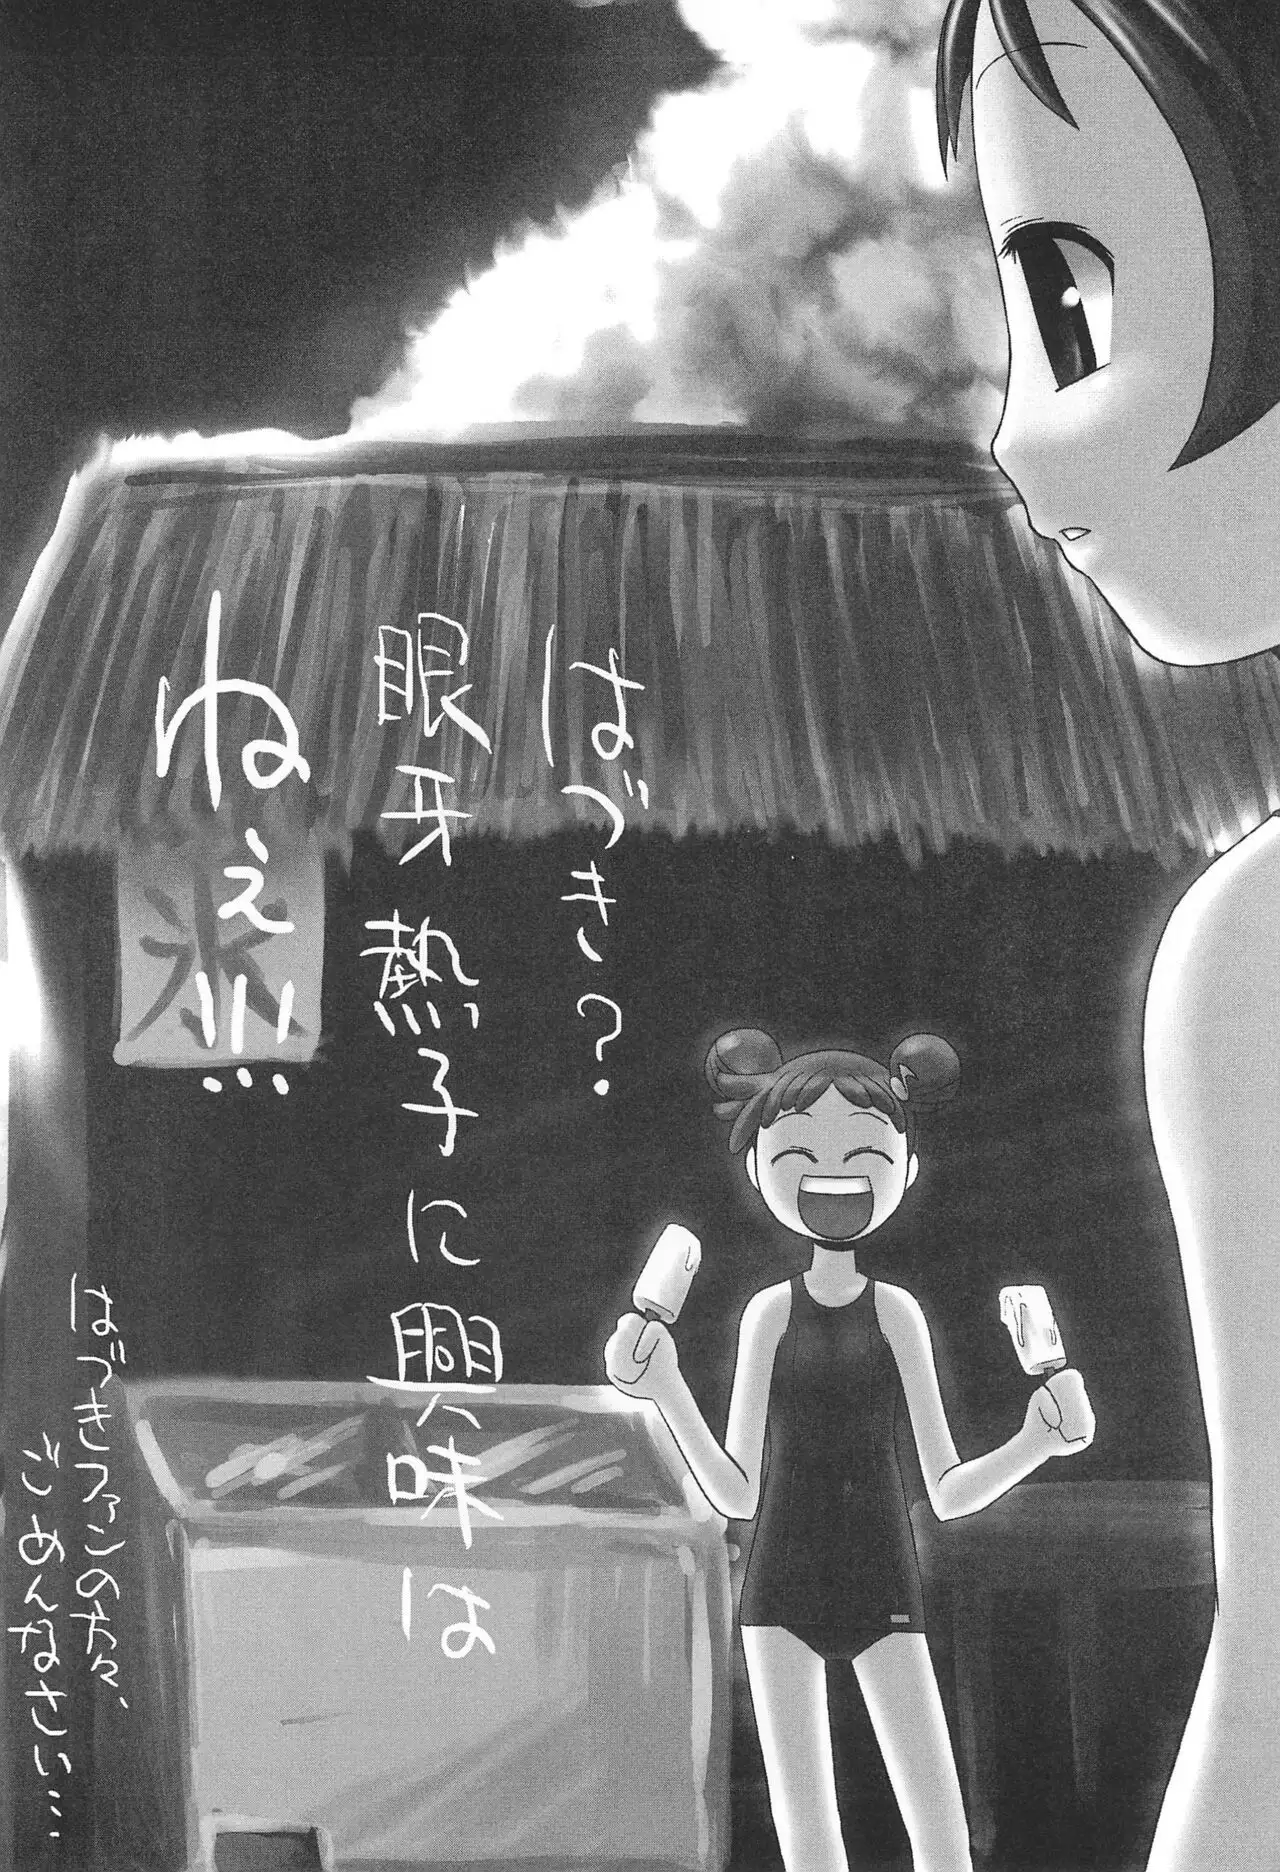 はづき?
眼牙熱子に興味は
ねぇ!!!!
氷
はづきファンの方々、
ごめんなさい…